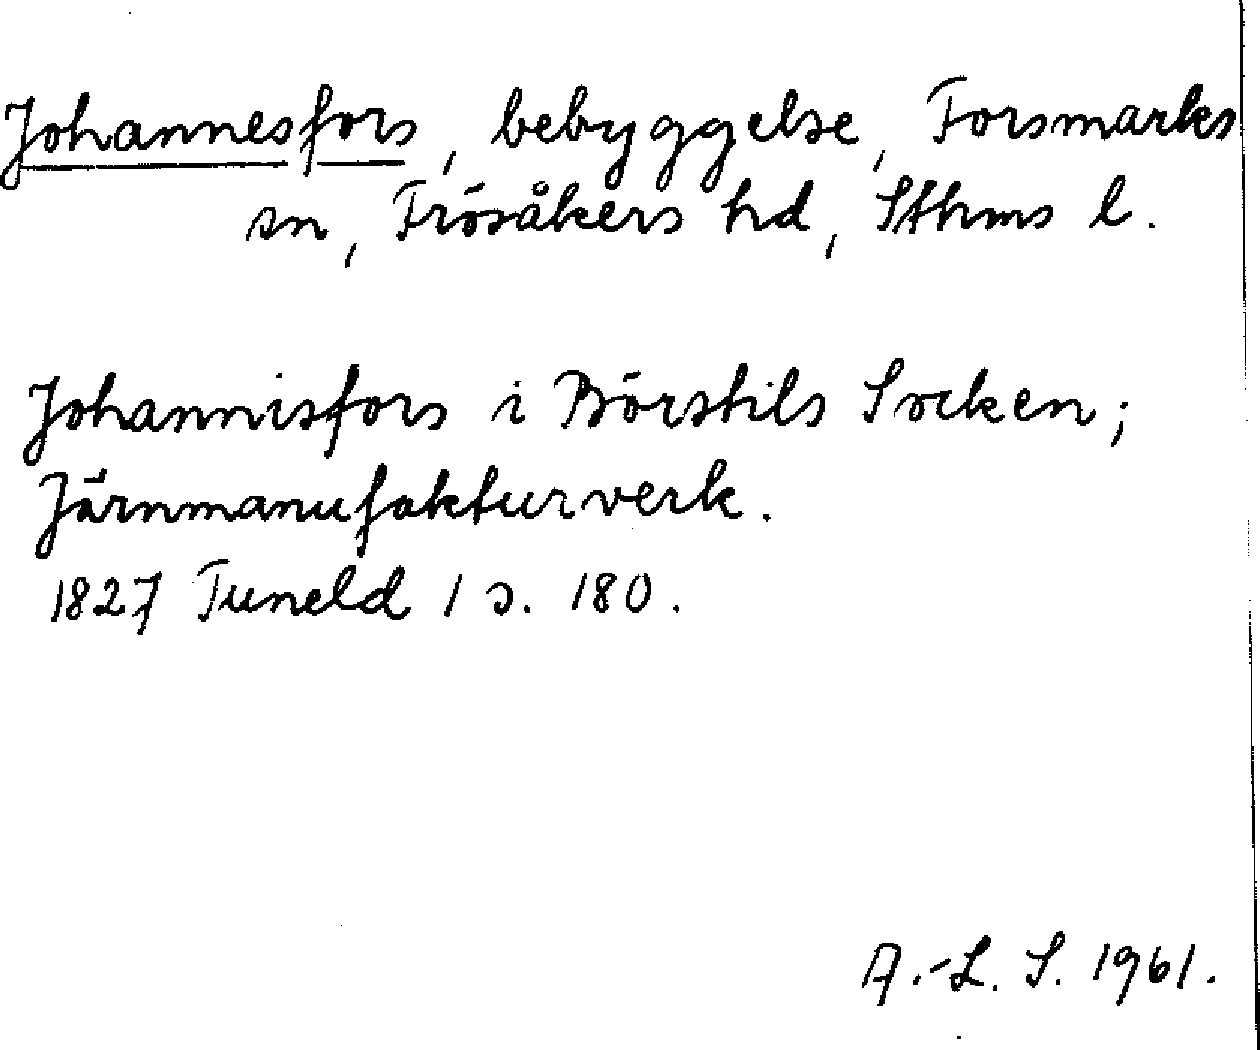 Johannesfors, bebyggelse, Forsmarks
sn, Frösåkers hd, Sthms l.
Johannisfors i Börstils Socken;
Järnmanufakturverk.
1827 Tuneld 1 s. 180.
A.-L. S. 1961.